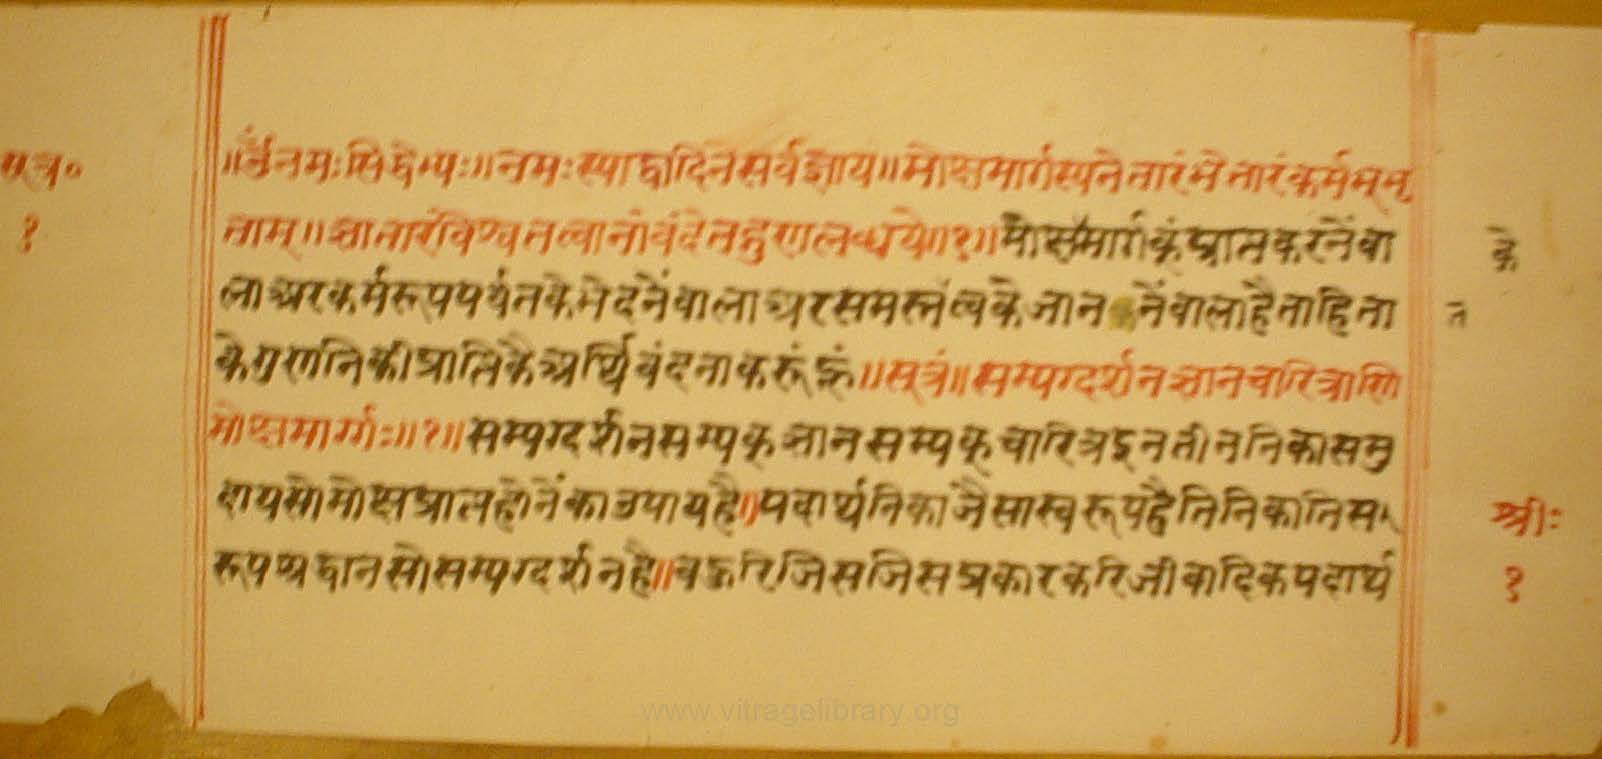 पत्र०
१
॥ॐनमःसिद्धेभ्यः॥नमःस्याद्वादिनेसर्वज्ञाय॥मोक्षमार्गस्यनेतारंभेत्तारंकर्मभूभृ
ताम्॥ज्ञातारंविश्वतत्वानांवंदेतद्गुणलब्धये॥१॥मोक्षमार्गकूंप्राप्तकरनेंवा
के
लाअरकर्मरूपपर्वतकेभेदनेंवालाअरसमस्तत्वकेजाननेंवालाहैताहिता
त
केगुणनिकीप्राप्तिकैअर्थिवंदनाकरूंहूं॥सूत्रं॥सम्यग्दर्शनज्ञानचारित्राणि
मोक्षमार्ग्गः॥१॥सम्यग्दर्शनसम्यक्ज्ञानसम्यक्चारित्रइनतीननिकासमु
दायसोमोक्षप्राप्तहोनेंकाउपायहै॥पदार्थनिकाजैसास्वरूपहैतिनिकातिस
श्रीः
रूपश्रद्धानसोसम्यग्दर्शनहै॥बहुरिजिसजिसप्रकारकरिजीवादिकपदार्थ
१
www.vitragelibrary.org